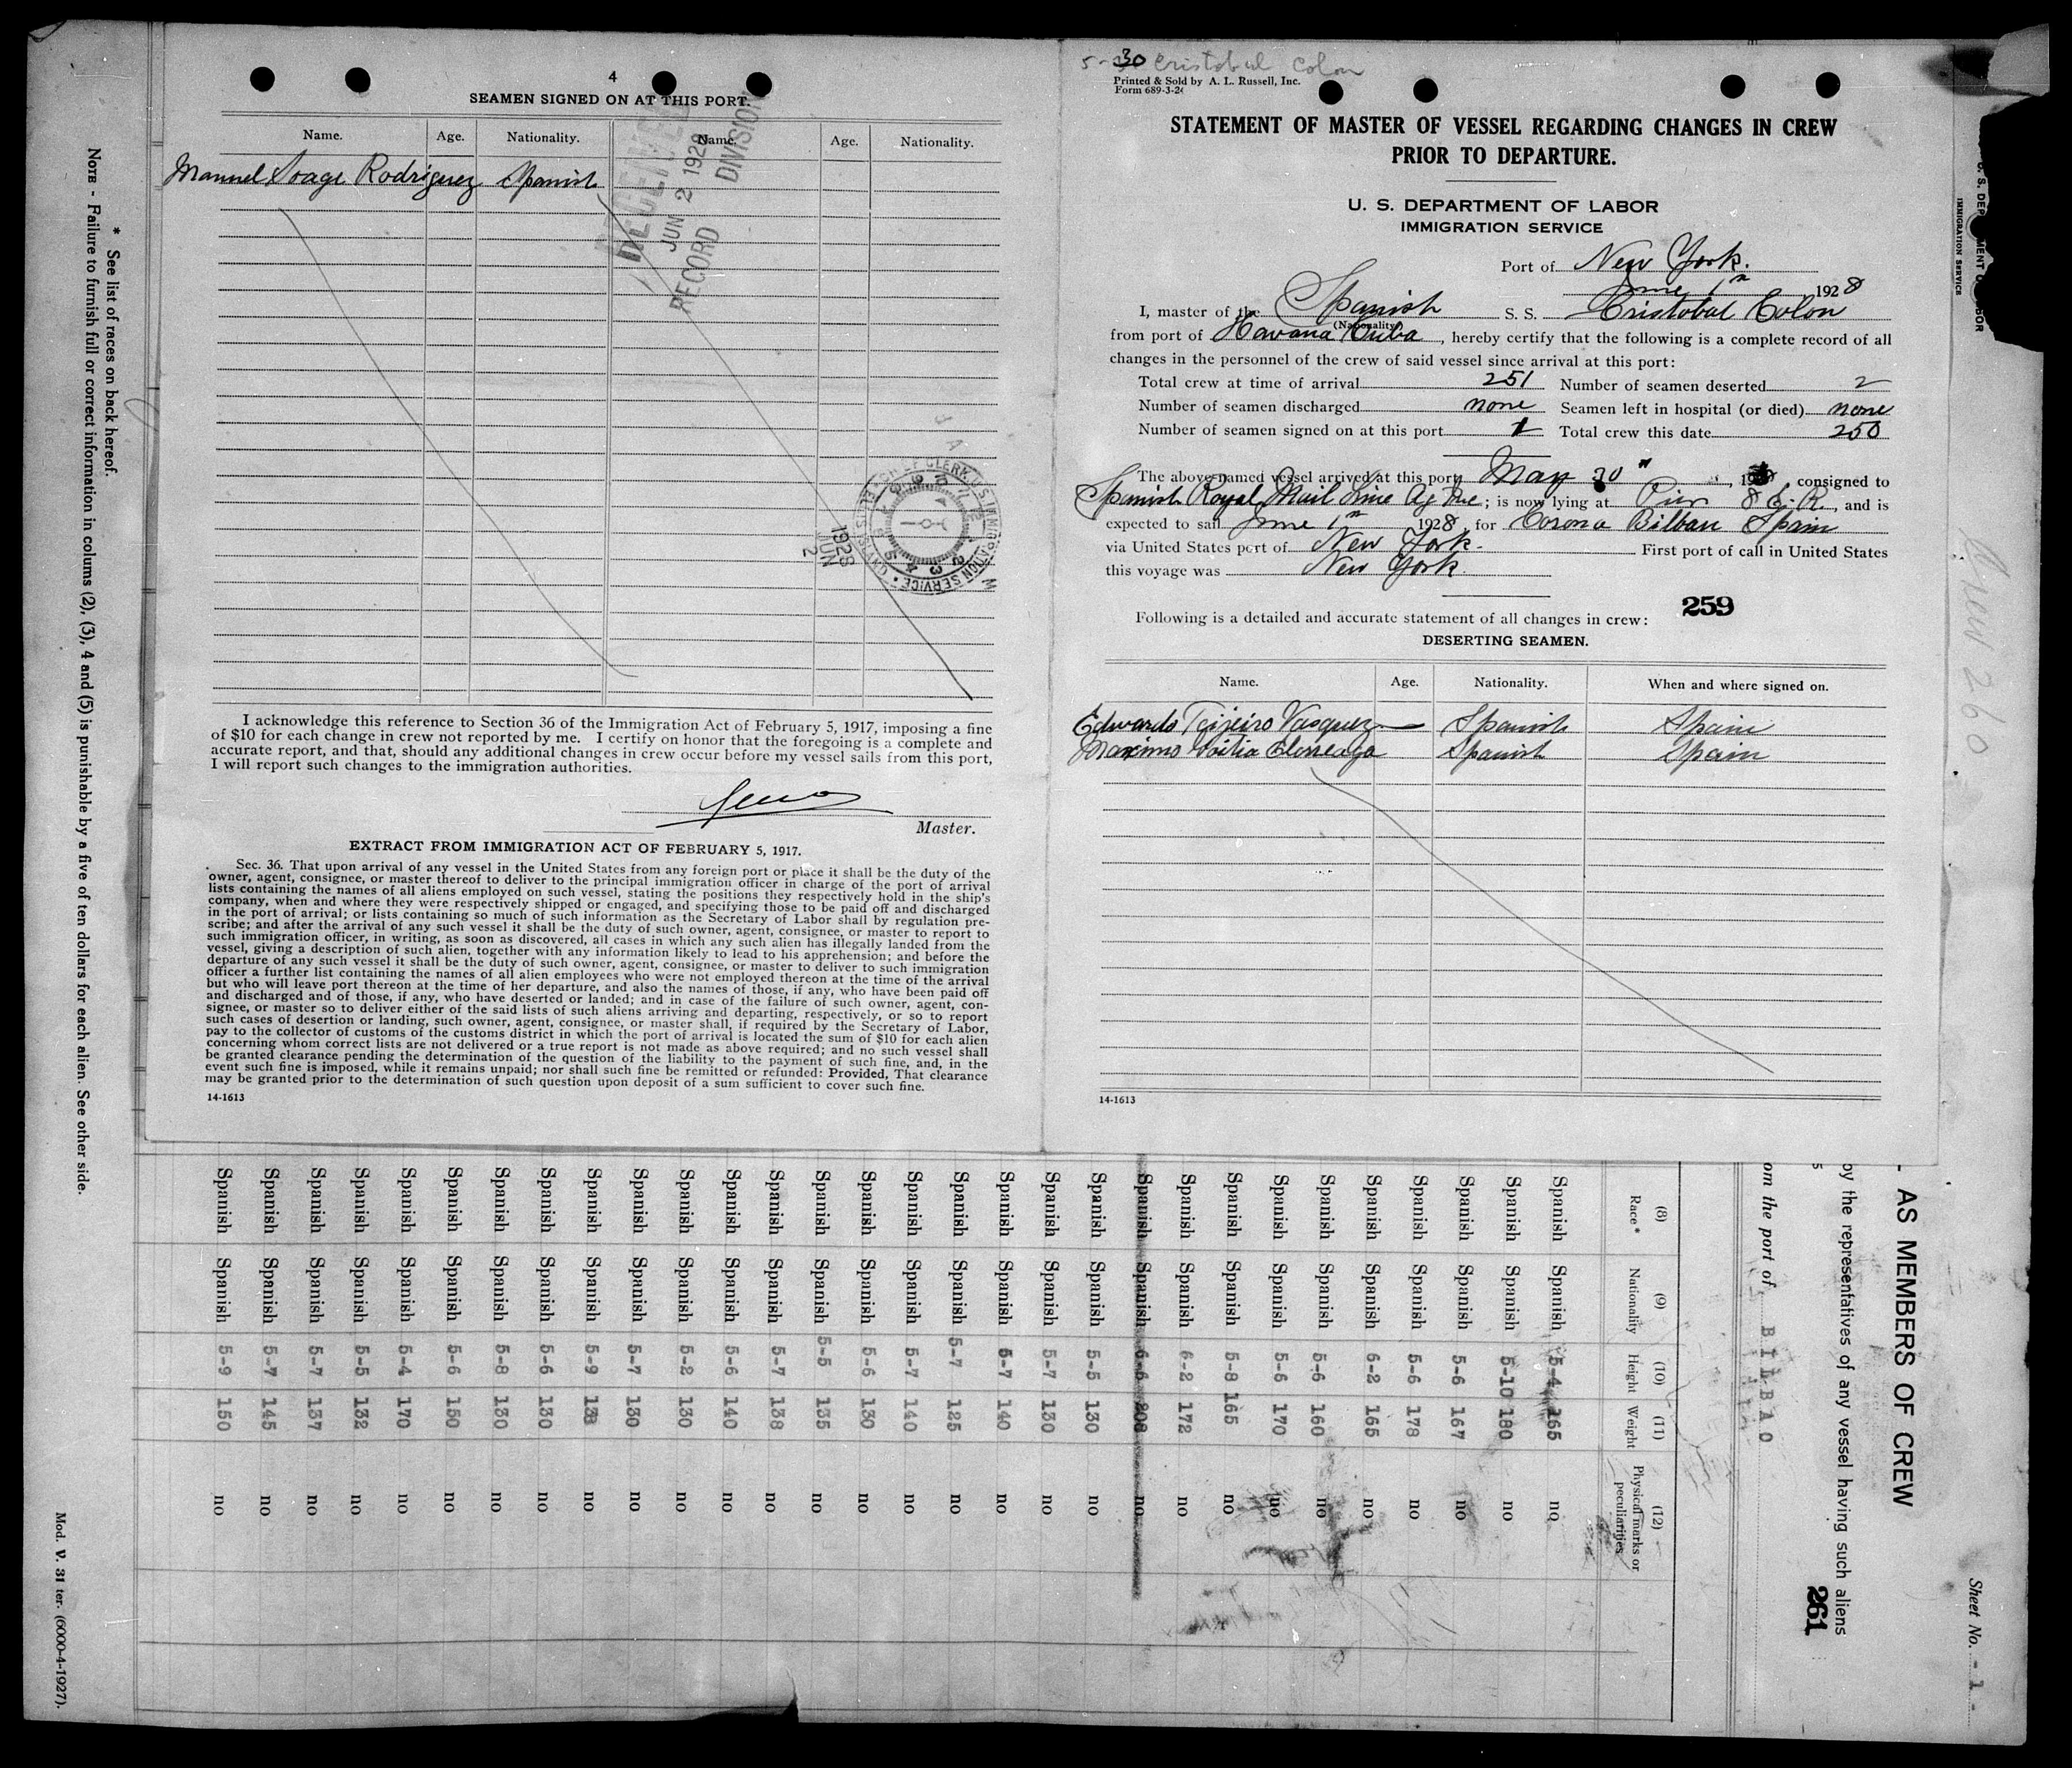 4
SEAMEN SIGNED ON AT THIS PORT.
Name. Age. Nationality. Name. Age. Nationality.
Manuel Soage Rodriguez Spanish
RECEIVED
JUN 2 1928
RECORD DIVISION
1928
JUN
2
I acknowledge this reference to Section 36 of the Immigration Act of February 5, 1917, imposing a fine
of $10 for each change in crew not reported by me. I certify on honor that the foregoing is a complete and
accurate report, and that, should any additional changes in crew occur before my vessel sails from this port,
I will report such changes to the immigration authorities.
Master.
EXTRACT FROM IMMIGRATION ACT OF FEBRUARY 5, 1917.
Sec. 36. That upon arrival of any vessel in the United States from any foreign port or place it shall be the duty of the
owner, agent, consignee, or master thereof to deliver to the principal immigration officer in charge of the port of arrival
lists containing the names of all aliens employed on such vessel, stating the positions they respectively hold in the ship's
company, when and where they were respectively shipped or engaged, and specifying those to be paid off and discharged
in the port of arrival; or lists containing so much of such information as the Secretary of Labor shall by regulation pre-
scribe; and after the arrival of any such vessel it shall be the duty of such owner, agent, consignee, or master to report to
such immigration officer, in writing, as soon as discovered, all cases in which any such alien has illegally landed from the
vessel, giving a description of such alien, together with any information likely to lead to his apprehension; and before the
departure of any such vessel it shall be the duty of such owner, agent, consignee, or master to deliver to such immigration
officer a further list containing the names of all alien employees who were not employed thereon at the time of the arrival
but who will leave port thereon at the time of her departure, and also the names of those, if any, who have been paid off
and discharged and of those, if any, who have deserted or landed; and in case of the failure of such owner, agent, con-
signee, or master so to deliver either of the said lists of such aliens arriving and departing, respectively, or so to report
such cases of desertion or landing, such owner, agent, consignee, or master shall, if required by the Secretary of Labor,
pay to the collector of customs of the customs district in which the port of arrival is located the sum of $10 for each alien
concerning whom correct lists are not delivered or a true report is not made as above required; and no such vessel shall
be granted clearance pending the determination of the question of the liability to the payment of such fine, and, in the
event such fine is imposed, while it remains unpaid; nor shall such fine be remitted or refunded: Provided, That clearance
may be granted prior to the determination of such question upon deposit of a sum sufficient to cover such fine.
14-1613
5-30 Cristobal Colon
Printed & Sold by A. L. Russell, Inc.
Form 689-3-24
STATEMENT OF MASTER OF VESSEL REGARDING CHANGES IN CREW
PRIOR TO DEPARTURE.
U. S. DEPARTMENT OF LABOR
IMMIGRATION SERVICE
Port of New York.
June 1st 1928
I, master of the Spanish S. S. Cristobal Colon
(Nationality)
from port of Havana Cuba, hereby certify that the following is a complete record of all
changes in the personnel of the crew of said vessel since arrival at this port:
Total crew at time of arrival 251 Number of seamen deserted 2
Number of seamen discharged none Seamen left in hospital (or died) none
Number of seamen signed on at this port 1 Total crew this date 250
The above-named vessel arrived at this port May 30", 19 consigned to
Spanish Royal Mail Line Ag Inc; is now lying at Pier 8 E. R., and is
expected to sail June 1st 1928, for Corona Bilbao Spain
via United States port of New York. First port of call in United States
this voyage was New York
259
Following is a detailed and accurate statement of all changes in crew:
DESERTING SEAMEN.
Name. Age. Nationality. When and where signed on.
Edwardo Teijeiro Vasquez Spanish Spain
Maximo Spanish Spain
14-1613
Crew 260
U. S. DEPARTMENT OF LABOR
IMMIGRATION SERVICE
* See list of races on back hereof.
NOTE - Failure to furnish full or correct information in colums (2), (3), 4 and (5) is punishable by a five of ten dollars for each alien. See other side.
Mod. V. 31 ter. (6000-4-1927).
Sheet No. - 1 -
AS MEMBERS OF CREW
by the representatives of any vessel having such aliens
261
om the port of BILBAO
(8) (9) (10) (11) (12)
Race* Nationality Height Weight Physical marks or peculiarities
Spanish Spanish 5-4 165 no
Spanish Spanish 5-10 180 no
Spanish Spanish 5-6 167 no
Spanish Spanish 5-6 178 no
Spanish Spanish 6-2 165 no
Spanish Spanish 5-6 160 no
Spanish Spanish 5-6 170 no
Spanish Spanish 5-8 165 no
Spanish Spanish 6-2 172 no
Spanish Spanish 6-6 208 no
Spanish Spanish 5-5 130 no
Spanish Spanish 5-7 130 no
Spanish Spanish 5-7 140 no
Spanish Spanish 5-7 125 no
Spanish Spanish 5-7 140 no
Spanish Spanish 5-6 130 no
Spanish Spanish 5-5 135 no
Spanish Spanish 5-7 138 no
Spanish Spanish 5-6 140 no
Spanish Spanish 5-2 130 no
Spanish Spanish 5-7 130 no
Spanish Spanish 5-9 138 no
Spanish Spanish 5-6 130 no
Spanish Spanish 5-8 130 no
Spanish Spanish 5-6 150 no
Spanish Spanish 5-4 170 no
Spanish Spanish 5-5 132 no
Spanish Spanish 5-7 137 no
Spanish Spanish 5-7 145 no
Spanish Spanish 5-9 150 no